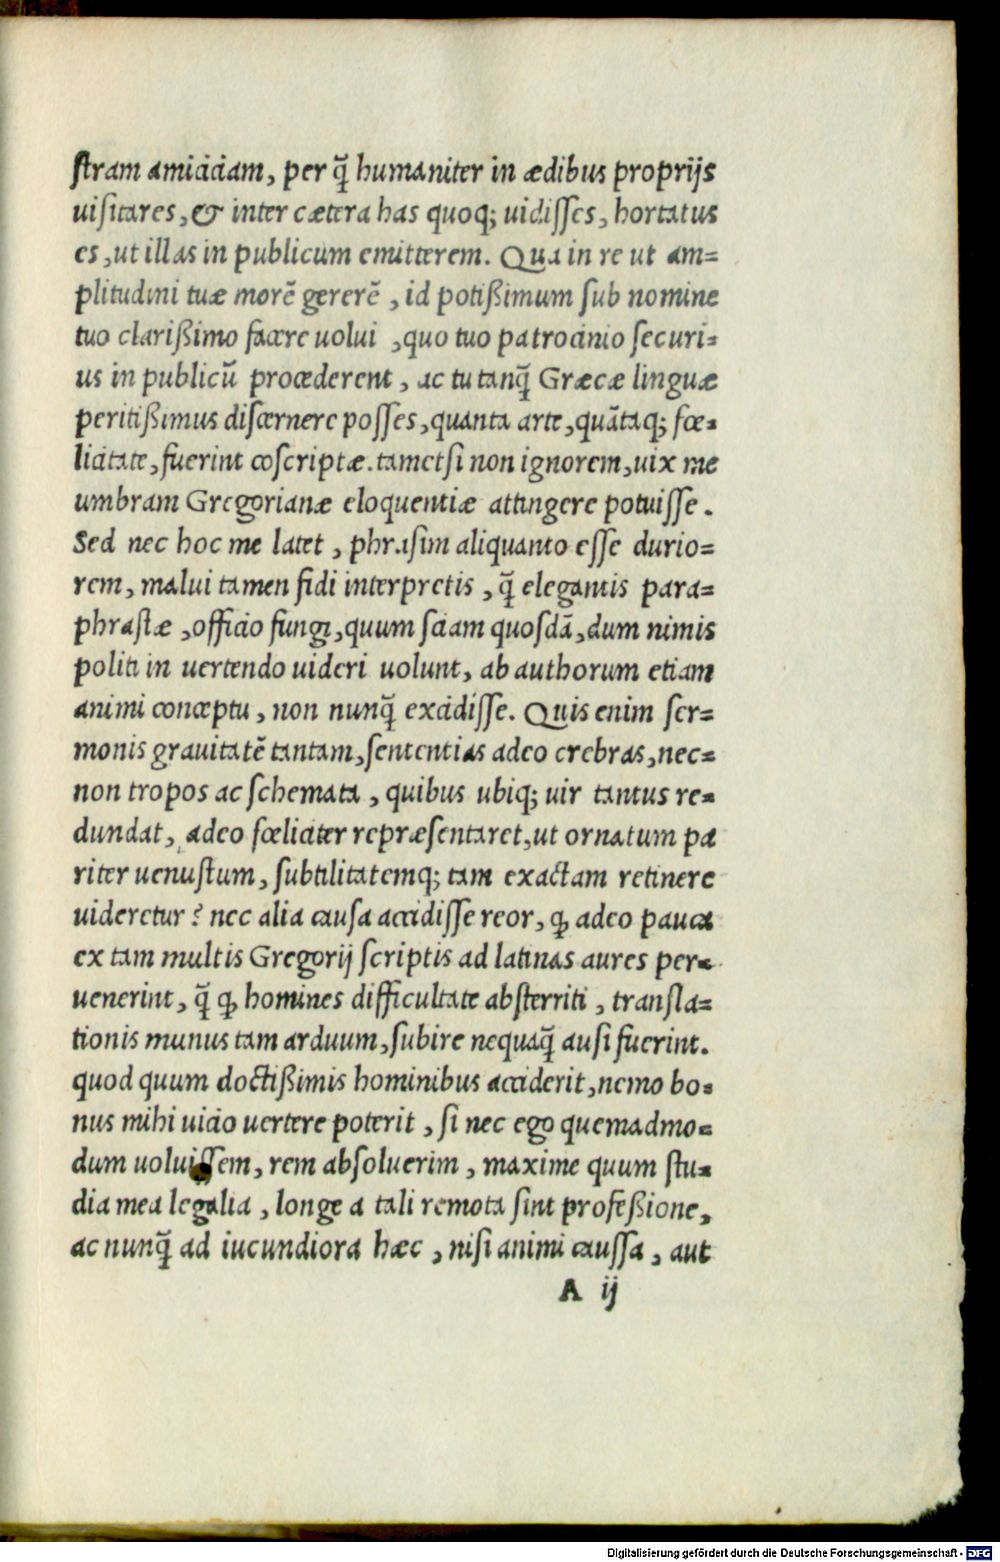 ſtram amicitiam, per q̃ humaniter in ædibus proprijs
uiſitares, & inter cætera has quoq; uidiſſes, hortatus
es, ut illas in publicum emitterem. Qua in re ut am=
plitudini tuæ morē gererē, id potißimum ſub nomine
tuo clarißimo facere uolui, quo tuo patrocinio ſecuri=
us in publicū procederent, ac tu tanq̃ Græcæ linguæ
peritißimus diſcernere poſſes, quanta arte, quātaq; fœ=
licitate, fuerint coſcriptæ. tametſi non ignorem, uix me
umbram Gregorianæ eloquentiæ attingere potuiſſe.
Sed nec hoc me latet, phraſim aliquanto eſſe durio=
rem, malui tamen fidi interpretis, q̃ elegantis para=
phraſtæ, officio fungi, quum ſciam quoſdā, dum nimis
politi in uertendo uideri uolunt, ab authorum etiam
animi conceptu, non nunq̃ excidiſſe. Quis enim ſer=
monis grauitatē tantam, ſententias adeo crebras, nec=
non tropos ac ſchemata, quibus ubiq; uir tantus re=
dundat, adeo fœliciter repræſentaret, ut ornatum pa
riter uenuſtum, ſubtilitatemq; tam exactam retinere
uideretur? nec alia cauſa accidiſſe reor, ꝙ adeo pauca
ex tam multis Gregorij ſcriptis ad latinas aures per=
uenerint, q̃ ꝙ homines difficultate abſterriti, transla=
tionis munus tam arduum, ſubire nequaq̃ auſi fuerint.
quod quum doctißimis hominibus acciderit, nemo bo=
nus mihi uicio uertere poterit, ſi nec ego quemadmo=
dum uoluiſſem, rem abſoluerim, maxime quum ſtu=
dia mea legalia, longe a tali remota ſint profeßione,
ac nunq̃ ad iucundiora hæc, niſi animi cauſſa, aut
A ij
Digitalisierung gefördert durch die Deutsche Forschungsgemeinschaft - DFG